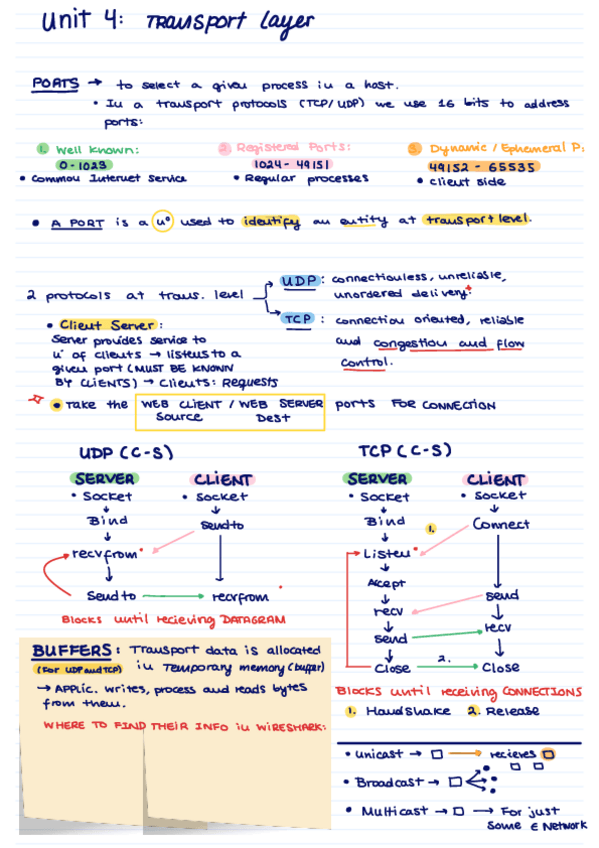 Unit 4: Transport layer
PORTS → to select a given process in a host.
• In a transport protocols (TCP/UDP) we use 16 bits to address
ports:
1. Well Known:
0-1023
• Common Internet Service
2. Registered Ports:
1024 - 49151
• Regular processes
3. Dynamic / Ephemeral P:
49152 - 65535
• Client side
• A PORT is a nº used to identify an entity at transport level.
2 protocols at trans. level
UDP: connectionless, unreliable,
unordered delivery.
TCP: connection oriented, reliable
and congestion and flow
control.
• Client Server:
Server provides service to
nº of clients → listens to a
given port (MUST BE KNOWN
BY CLIENTS) → Clients: Requests
• Take the WEB CLIENT / WEB SERVER ports FOR CONNECTION
Source Dest
UDP (C-S)
SERVER CLIENT
• Socket • Socket
Bind Sendto
recvfrom*
Sendto → recvfrom
Blocks until recieving DATAGRAM
TCP (C-S)
SERVER CLIENT
• Socket • Socket
Bind 1. Connect
Listen*
Acept
send
recv
recv
send
Close 2. Close
Blocks until receiving CONNECTIONS
1. Handshake 2. Release
BUFFERS: Transport data is allocated
(For UDP and TCP) in Temporary memory (buffer)
→ Applic. writes, process and reads bytes
from them.
WHERE TO FIND THEIR INFO in WIRESHARK:
• Unicast → → recieves
• Broadcast →
• Multicast → → For just
some ∈ Network